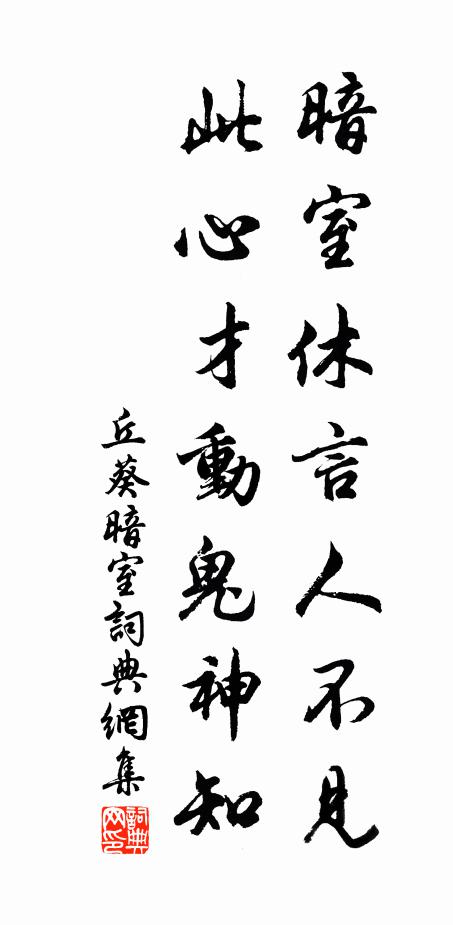 暗室休言人不見
此心才動鬼神知
丘葵暗室詞典網集
詞典网印